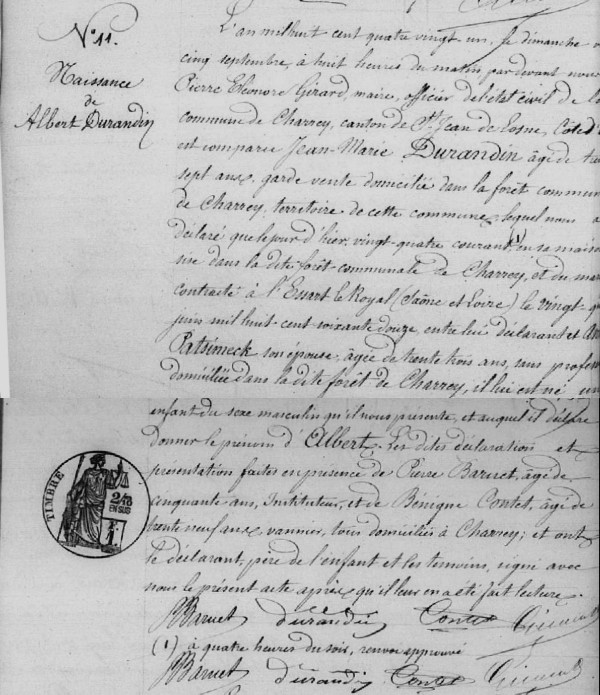 N° 11.
Naissance
de
Albert Durandin
L'an mil huit cent quatre vingt un, le dimanche
cinq septembre, à huit heures du matin par devant nous
Pierre Eléonore Girard, maire, officier de l'état civil de la
commune de Charrey, canton de St Jean de Losne, Côte d'
est comparu Jean-Marie Durandin âgé de
sept ans, garde vente domicilié dans la forêt commun
de Charrey, territoire de cette commune, lequel nous a
déclaré que le jour d'hier, vingt-quatre courant (1) en sa maison
sise dans la dite forêt communale de Charrey, et du mar
contracté à l'Essart le Royal (Saône et Loire) le vingt-
juin mil huit cent soixante douze, entre lui déclarant et
Patsimeck son épouse, âgée de trente trois ans, sans profess
domiciliée dans la dite forêt de Charrey, il lui est né un
enfant du sexe masculin qu'il nous présente, et auquel il déclare
donner le prénom d'Albert. Les dites déclaration et
présentation faites en présence de Pierre Baruet, âgé de
cinquante ans, Instituteur, et de Bénigne Contet, âgé de
trente neuf ans, vannier, tous domiciliés à Charrey; et ont
le déclarant, père de l'enfant et les témoins, signé avec
nous le présent acte après qu'il leur en a été fait lecture.
PBaruet durandin Contet
(1) à quatre heures du soir, renvoi approuvé
PBaruet durandin Contet
TIMBRE
2/10
EN SUS